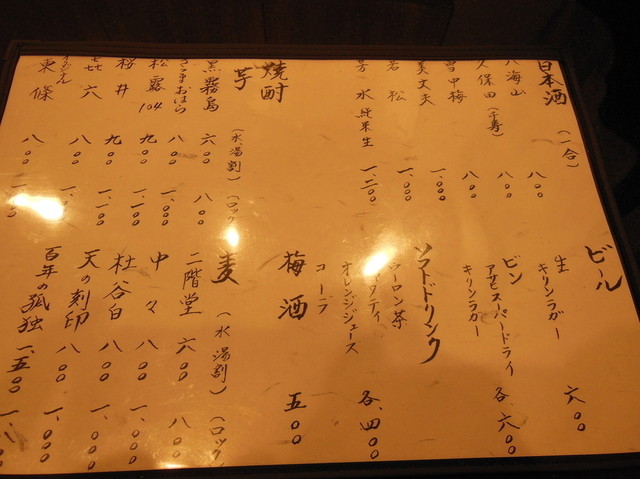 日本酒 (一合)
八海山 八〇〇
久保田(千寿) 八〇〇
雪中梅 八〇〇
美丈夫 一、〇〇〇
若松 一、〇〇〇
芳水 純米生 一、二〇〇
焼酎
芋 (水、湯割) (ロック)
黒霧島 六〇〇 八〇〇
さつまおはら 八〇〇 一、〇〇〇
松露104 九〇〇 一、一〇〇
桜井 九〇〇 一、一〇〇
六 八〇〇 一、〇〇〇
東條 八〇〇
ビール
生
キリンラガー 六〇〇
ビン
アサヒスーパードライ
キリンラガー 各、六〇〇
ソフトドリンク
ウーロン茶
オレンジジュース
コーラ 各、四〇〇
梅酒 五〇〇
麦 (水、湯割) (ロック)
二階堂 六〇〇 八〇〇
中々 八〇〇 一、〇〇〇
杜谷白 八〇〇 一、〇〇〇
天の刻印 八〇〇 一、〇〇〇
百年の孤独 一、五〇〇